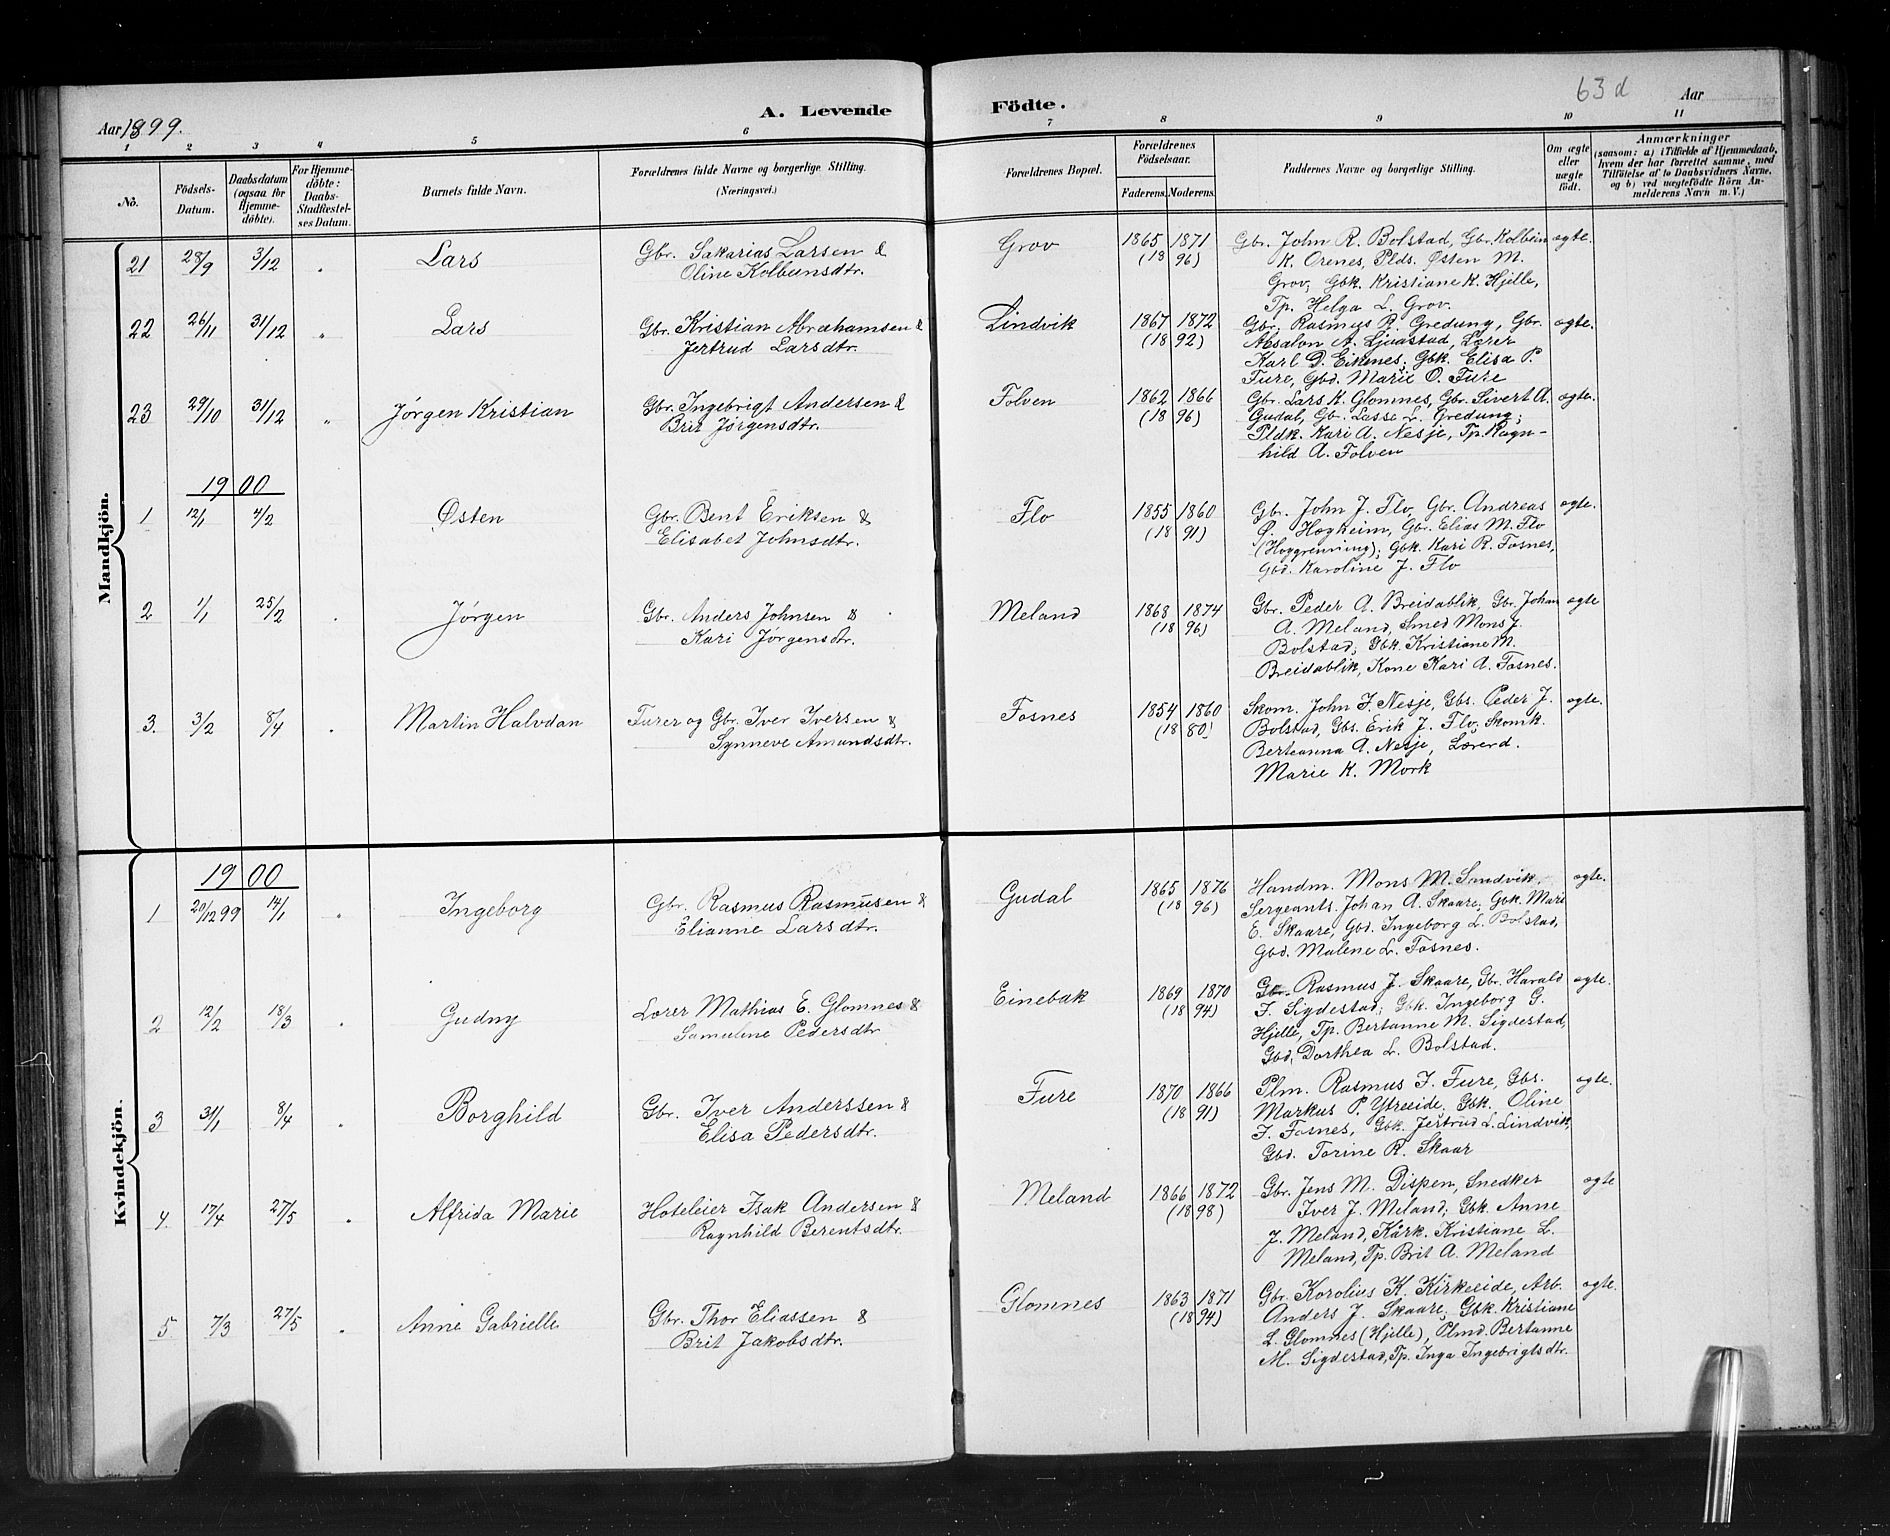 63 d
A. Levende Födte.
Aar 1899. Aar
1 2 3 4 5 6 7 8 9 10 11
No. Födsels-Datum. Daabsdatum (ogsaa for Hjemmedöbte). For Hjemmedöbte: Daabs-Stadfæstelses Datum. Barnets fulde Navn. Forældrenes fulde Navne og borgerlige Stilling. (Næringsvei.) Forældrenes Bopæl. Forældrenes Födselsaar. Faderens. Moderens. Faddernes Navne og borgerlige Stilling. Om ægte eller uægte födt. Anmærkninger (saasom: a) i Tilfælde af Hjemmedaab, hvem der har forrettet samme, med Tilföielse af to Daabsvidners Navne, og b) ved uægtefödte Börn Anmelderens Navn m. V.)
Mandkjön.
21 28/9 3/12 " Lars Gbr. Sakarias Larsen & Grov 1865 1871 Gbr. John R. Bolstad, Gbr. Kolbein ægte.
Oline Kolbeinsdtr. (18 96) K. Orenes, Plds. Østen M.
Grov; Gbk. Kristiane K. Hjelle,
Tp. Helga L. Grov.
22 26/11 31/12 " Lars Gbr. Kristian Abrahamsen & Lindvik 1867 1872 Gbr. Rasmus R. Gredung, Gbr. ægte.
Jertrud Larsdtr. (18 92) Absalon A. Ljosstad, Lærer
Karl D. Eiknes; Gbk. Elisa P.
Fure, Gbd. Marie O. Fure
23 29/10 31/12 " Jørgen Kristian Gbr. Ingebrigt Andersen & Folven 1862 1866 Gbr. Lars K. Glomnes, Gbr. Sivert A. ægte.
Brit Jørgensdtr. (18 96) Gudal, Gbr. Lasse L. Gredung;
Pldk. Kari A. Nesje, Tp. Ragn-
hild A. Folven
1900
1 12/1 4/2 Østen Gbr. Bent Eriksen & Flo 1855 1860 Gbr. John J. Flo, Gbr. Andreas ægte.
Elisabet Johnsdtr. (18 91) Ø. Hogheim, Gbr. Elias M. Flo
(Hoggrenning); Gbk. Kari R. Fosnes,
Gbd. Karoline J. Flo
2 1/1 25/2 " Jørgen Gbr. Anders Johnsen & Meland 1868 1874 Gbr. Peder A. Breidablik, Gbr. Johan ægte
Kari Jørgensdtr. (18 96) A. Meland, Smed Mons J.
Bolstad; Gbk. Kristiane M.
Breidablik, Kone Kari A. Fosnes.
3. 3/2 8/4 " Martin Halvdan Furer og Gbr. Iver Iversen & Fosnes 1854 1860 Skom. John J. Nesje, Gbs. Peder J. ægte.
Synneve Amundsdtr. (18 80) Bolstad, Gbs. Erik J. Flo; Skomk.
Berteanna A. Nesje, Lærerd.
Marie K. Mork
Kvindekjön.
1900
1 20/12 99 14/1 " Ingeborg Gbr. Rasmus Rasmusen & Gudal 1865 1876 Handm. Mons M. Sandvik, ægte.
Elianne Larsdtr. (18 96) Sergeants. Johan A. Skaare; Gbk. Mari
E. Skaare, Gbd. Ingeborg L. Bolstad,
Gbd. Malene L. Fosnes.
2 12/2 18/3 " Gudny Lærer Mathias E. Glomnes & Einebak 1869 1870 Gbr. Rasmus J. Skaare, Gbr. Harald ægte.
Samuline Pedersdtr (18 94) F. Sigdestad; Gbk. Ingeborg G.
Hjelle, Tp. Bertanne M. Sigdestad,
Gbd. Dorthea L. Bolstad.
3 31/1 8/4 " Borghild Gbr. Iver Anderssen & Fure 1870 1866 Plm. Rasmus J. Fure, Gbs. ægte.
Elisa Pedersdtr. (18 91) Markus P. Ytreeide; Gbk. Oline
J. Fosnes, Gbk. Jertrud L. Lindvik,
Gbd. Torine R. Skaar
4 17/4 27/5 " Alfrida Marie Hoteleier Isak Andersen & Meland 1866 1872 Gbr. Jens M. Dispen, Snedker ægte
Ragnhild Berentsdtr. (18 98) Iver J. Meland; Gbk. Anne
J. Meland, Kårk. Kristiane L.
Meland, Tp. Brit A. Meland
5 7/3 27/5 " Anne Gabrielle Gbr. Thor Eliassen & Glomnes 1863 1871 Gbr. Korolius K. Kirkeeide, Arb. ægte.
Brit Jakobsdtr. (18 94) Anders J. Skaare; Gbk. Kristiane
L. Glomnes (Hjelle), Plmd. Bertanne
M. Sigdestad, Tp. Inga Ingebrigtsdtr.